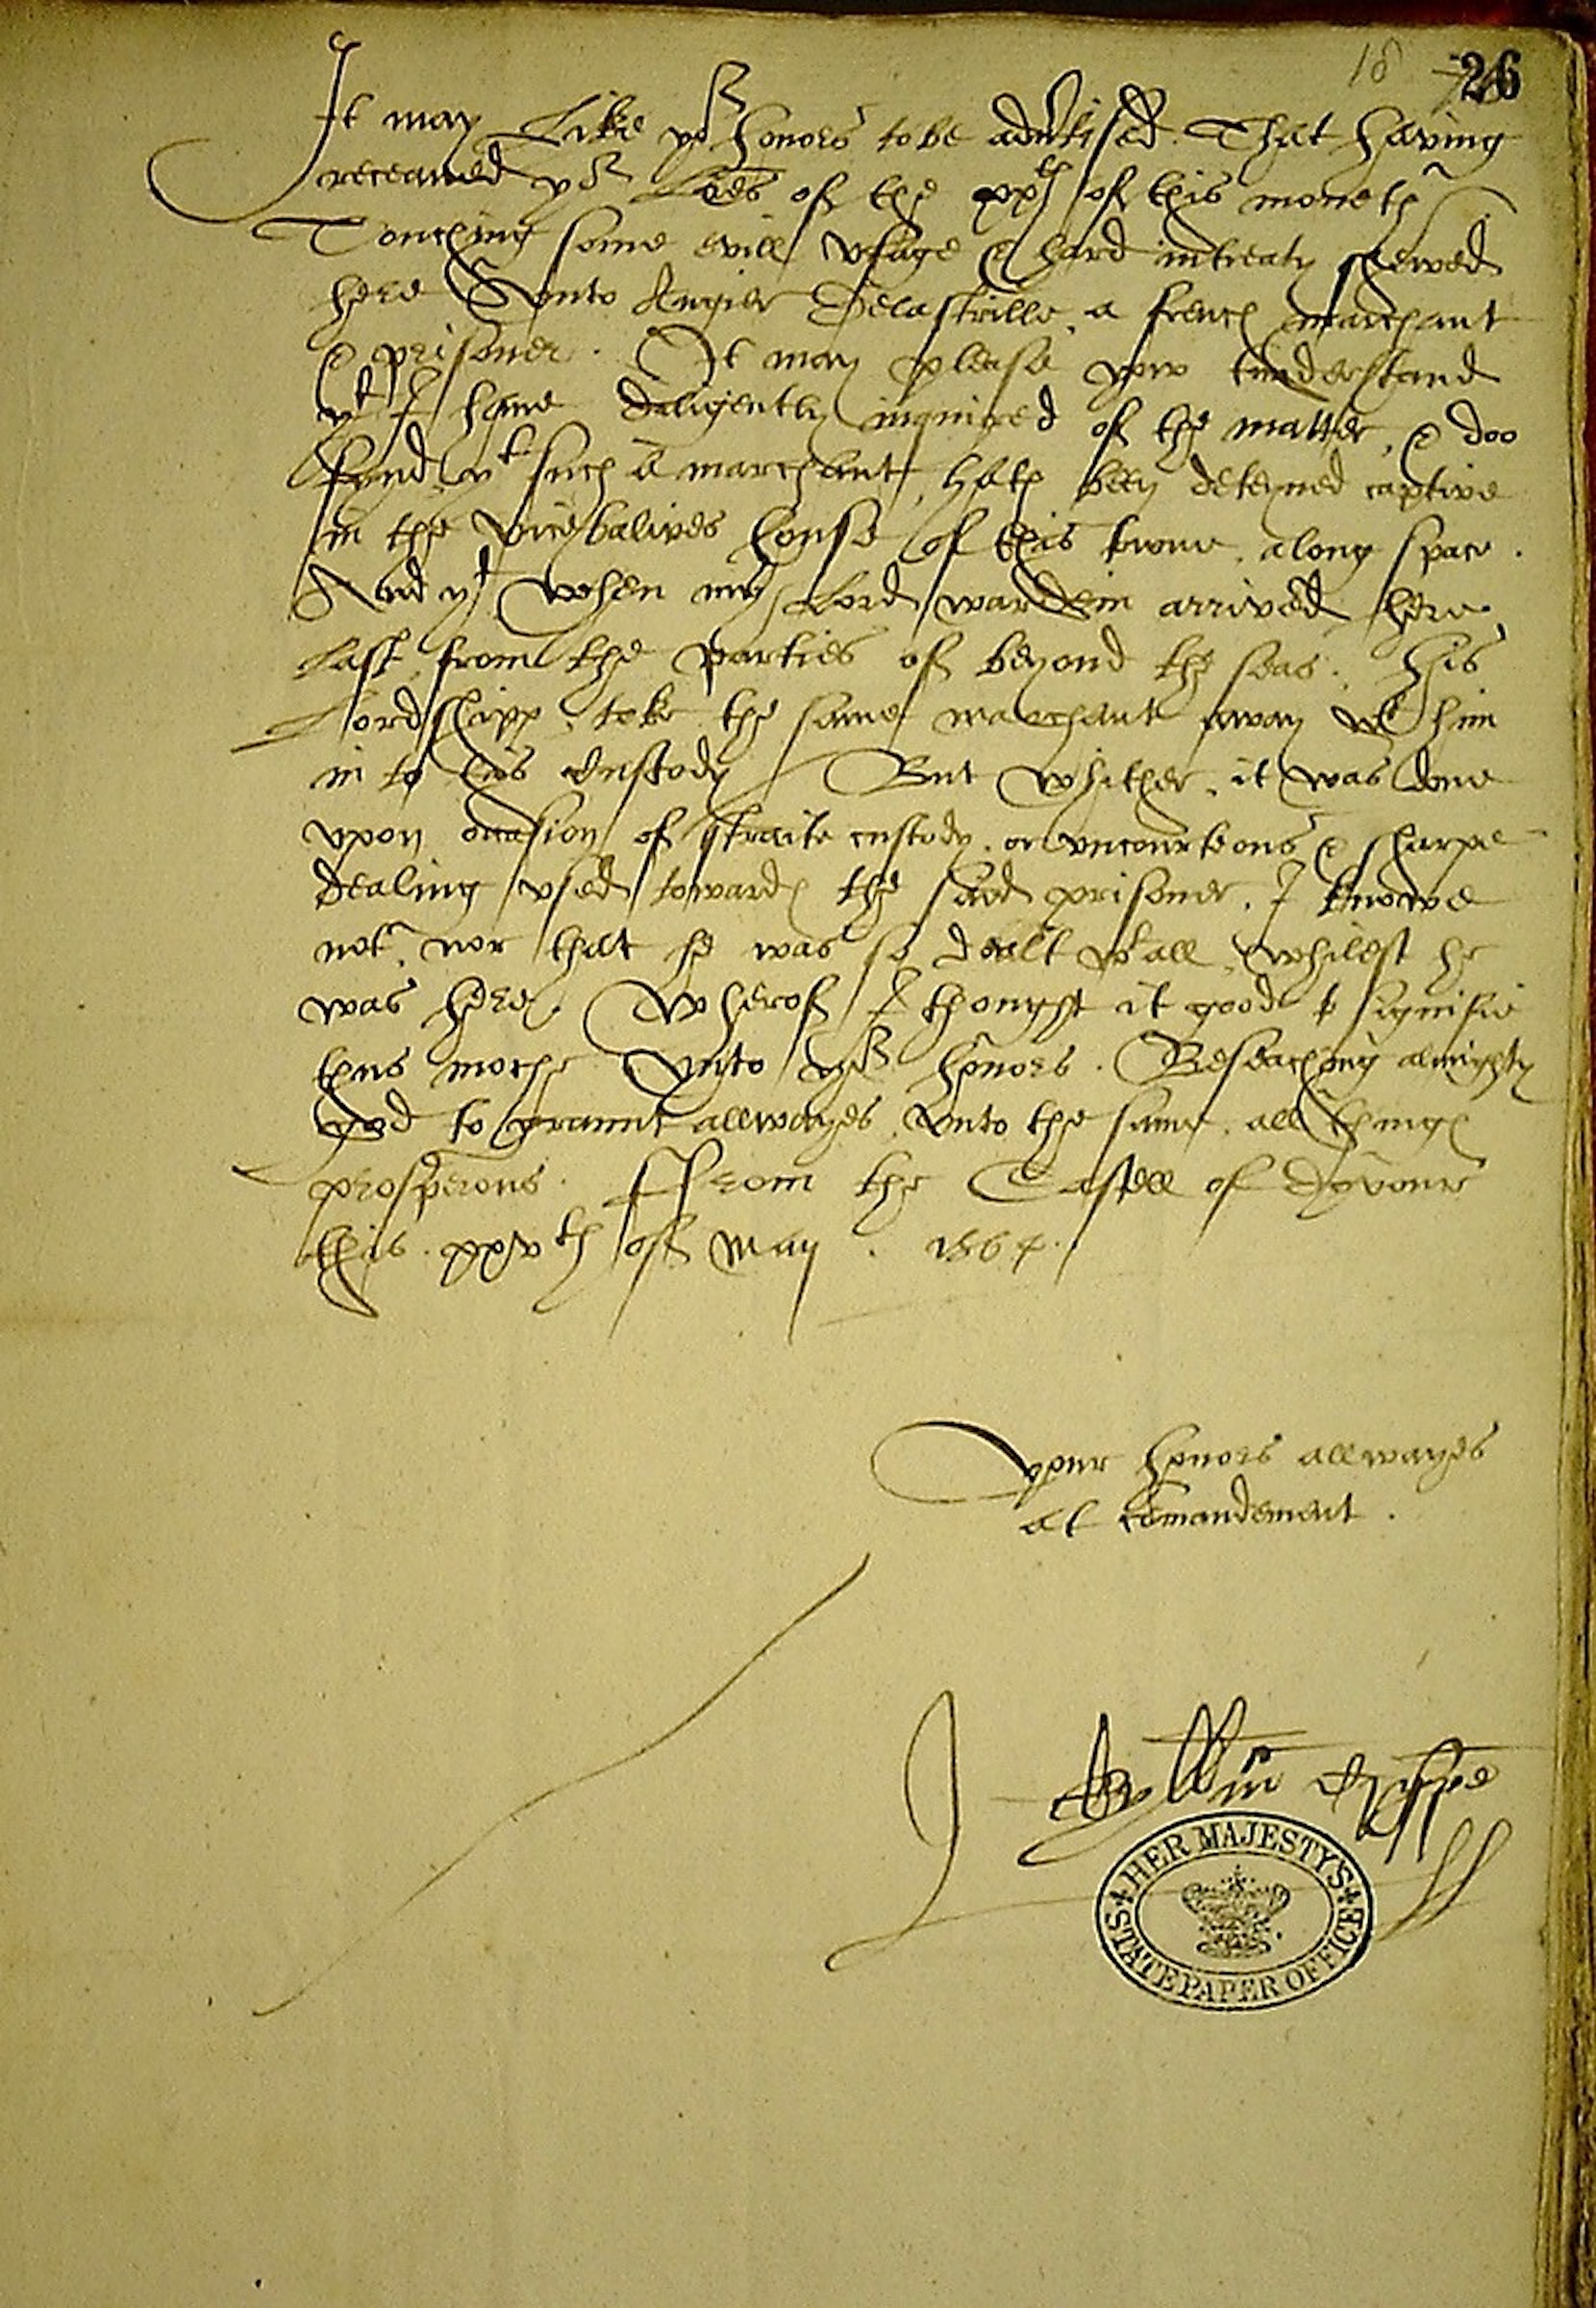 18 26
It may Like yor honors to be adv'tised That having
receaued yor Lres of the xxth of this moneth
Touching some evill vsage & hard intreaty shewed
here Vnto Angier Delastrille, a french marchant
& prisoner. It may please yow tunderstand
yt I haue deligently inquired of the matter, & doo
fynd yt such a marchant, hath been deteyned captive
in the vicebalives house of this towne, along space.
And yt when my Lord wardein arrived here
Last from the parties of beyond the seas. His
Lordshipp, toke the same marchant away wt him
in to his custody / But whither, it was done
vpon occasion of straite custody, or vncourteous & sharpe
dealing vsed toward the said prisoner, I knowe
not, nor that he was so dealt wtall, whilest he
was here. Wherof I thought it good to signifie
thus moche Vnto yor honors. Beseaching almighty
god to graunt allwayes, Vnto the same, all things
prosperous. From the Castell of Dovour
this xxvth of May. 1564.
Your honors allwayes
at comandement.
Wm Crispe
HER MAJESTY'S
STATE PAPER OFFICE